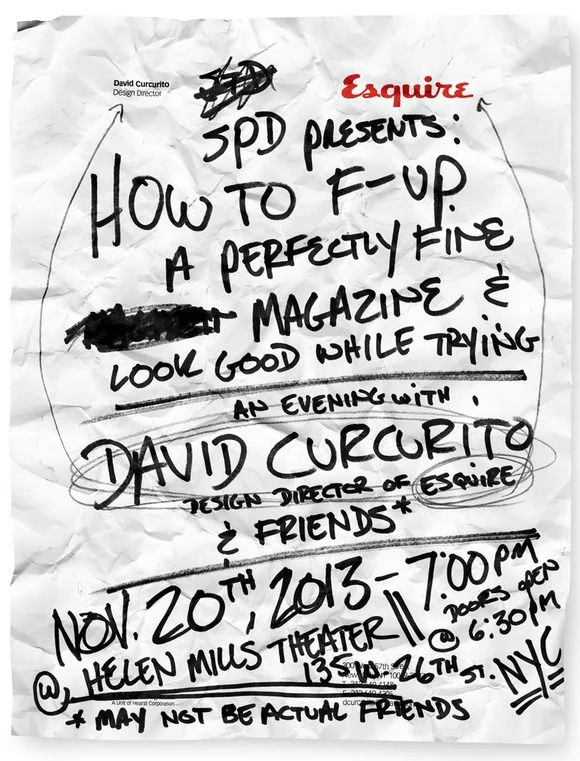 David Curcurito
Design Director
Esquire
SPD PRESENTS:
HOW TO F-UP
A PERFECTLY FINE
MAGAZINE &
LOOK GOOD WHILE TRYING
AN EVENING WITH
DAVID CURCURITO
DESIGN DIRECTOR OF ESQUIRE
& FRIENDS*
NOV. 20TH, 2013 - 7:00 PM
DOORS OPEN
@ 6:30 PM
@ HELEN MILLS THEATER
135 W. 26TH ST. NYC
A Unit of Hearst Corporation
* MAY NOT BE ACTUAL FRIENDS